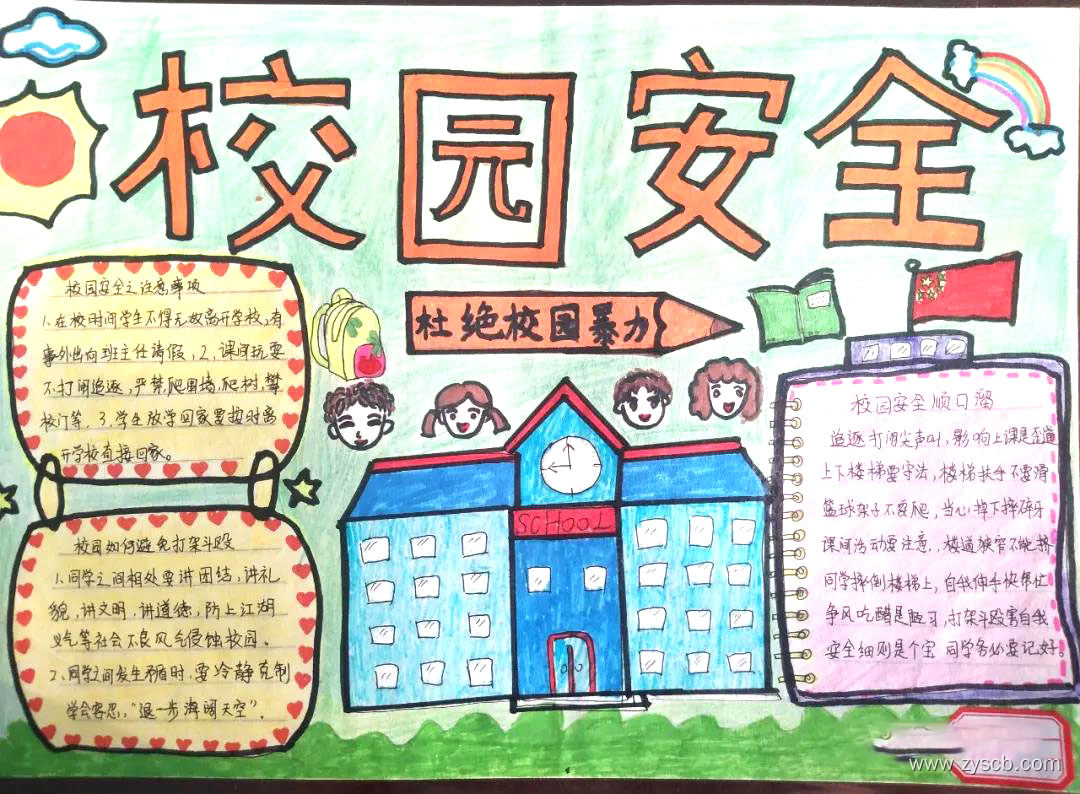 校园安全
校园安全之注意事项
1.在校时间学生不得无故离开学校,有
事外出向班主任请假,2.课间玩耍
不打闹追逐,严禁爬围墙,爬树,攀
校门等.3.学生放学回家要按时离
开学校直接回家。
杜绝校园暴力
校园如何避免打架斗殴
1.同学之间相处要讲团结,讲礼
貌,讲文明,讲道德,防止江湖
义气等社会不良风气侵蚀校园.
2.同学之间发生矛盾时,要冷静克制
学会容忍,"退一步海阔天空".
SCHOOL
校园安全顺口溜
追逐打闹尖声叫,影响上课是歪道
上下楼梯要守法,楼梯扶手不要滑
篮球架子不要爬,当心掉下摔碎牙
课间活动要注意,楼道狭窄不能挤
同学摔倒楼梯上,自我伸手快帮忙
争风吃醋是陋习,打架斗殴害自我
安全细则是个宝 同学务必要记好。
www.zyscb.com